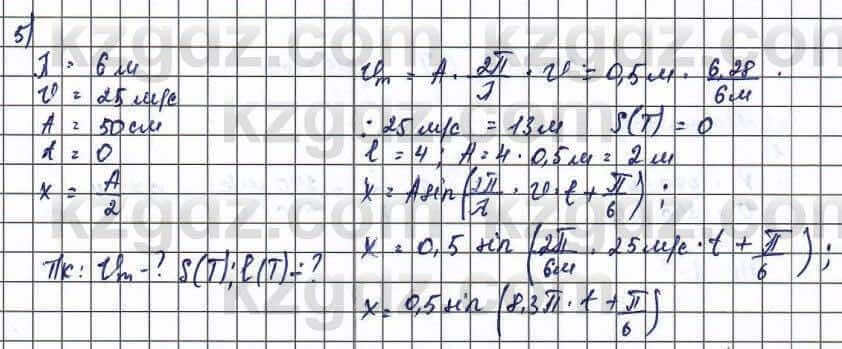 5)
λ = 6 м
υ = 25 м/с
A = 50 см
t = 0
x = A/2
Тк: υm - ? S(T); l(T) - ?
υm = A · 2π/λ · υ = 0,5 м · 6,28/6м ·
· 25 м/с = 13 м S(T) = 0
l = 4; A = 4 · 0,5 м = 2 м
x = A sin(2π/λ · υ · t + π/6);
x = 0,5 sin(2π/6м · 25 м/с · t + π/6);
x = 0,5 sin(8,3π · t + π/6)
kzgdz.com